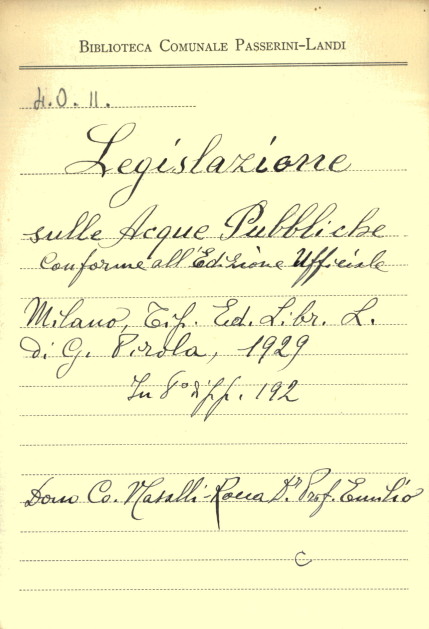 BIBLIOTECA COMUNALE PASSERINI-LANDI
4.O.11.
Legislazione
sulle Acque Pubbliche
Conforme all'Edizione Ufficiale
Milano, Tip. Ed. Libr. L.
di G. Pirola, 1929
In 8° di pp. 192
Dono Co. Nasalli-Rocca Dr. Prof. Emilio
C